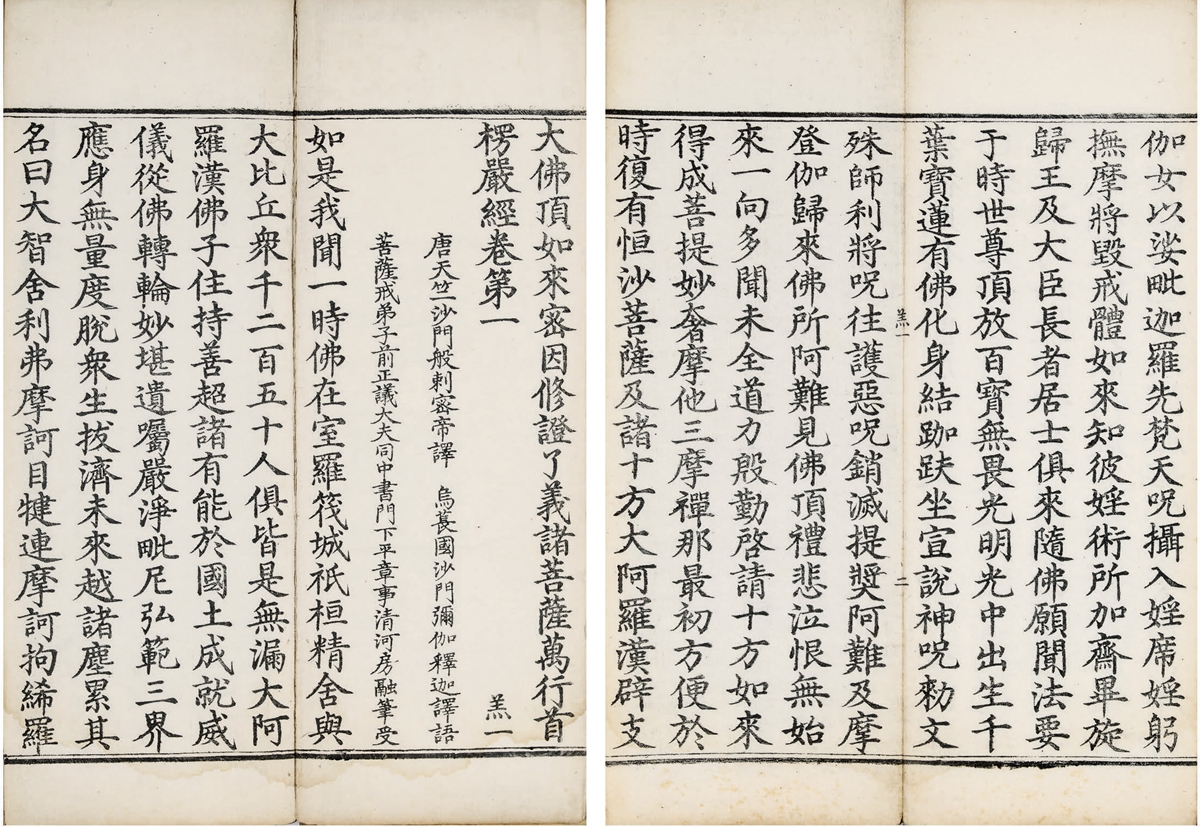 大佛頂如來密因修證了義諸菩薩萬行首
楞嚴經卷第一 羔一
唐天竺沙門般剌密帝譯 烏萇國沙門彌伽釋迦譯語
菩薩戒弟子前正議大夫同中書門下平章事清河房融筆受
如是我聞一時佛在室羅筏城祇桓精舍與
大比丘衆千二百五十人俱皆是無漏大阿
羅漢佛子住持善超諸有能於國土成就威
儀從佛轉輪妙堪遺囑嚴淨毗尼弘範三界
應身無量度脫衆生拔濟未來越諸塵累其
名曰大智舍利弗摩訶目犍連摩訶拘絺羅
伽女以娑毗迦羅先梵天呪攝入婬席婬躬
撫摩將毀戒體如來知彼婬術所加齋畢旋
歸王及大臣長者居士俱來隨佛願聞法要
于時世尊頂放百寶無畏光明光中出生千
葉寶蓮有佛化身結跏趺坐宣說神呪勑文
羔一 二
殊師利將呪往護惡呪銷滅提獎阿難及摩
登伽歸來佛所阿難見佛頂禮悲泣恨無始
來一向多聞未全道力殷勤啓請十方如來
得成菩提妙奢摩他三摩禪那最初方便於
時復有恒沙菩薩及諸十方大阿羅漢辟支